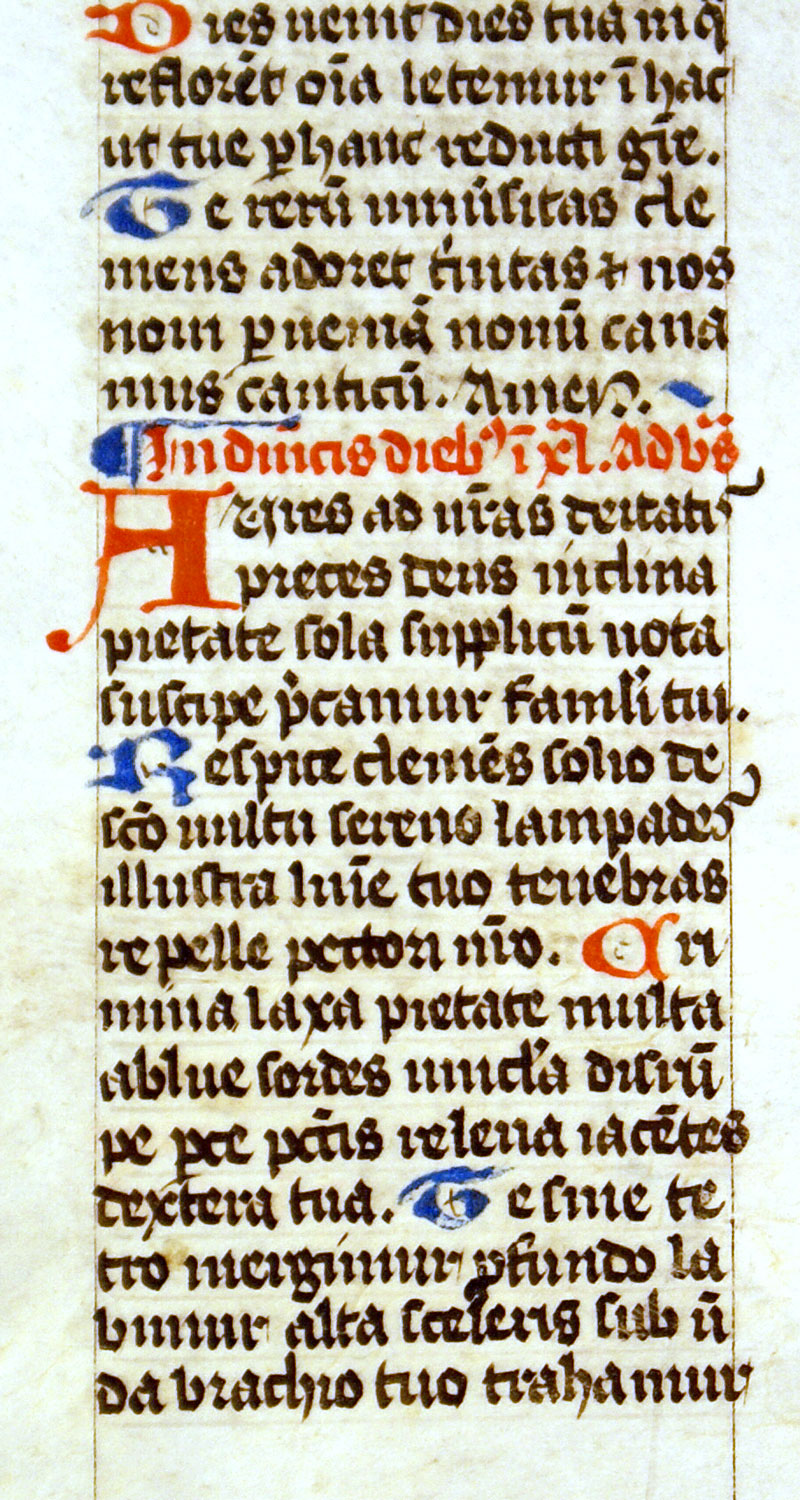 Dies uenit dies tua in q̄
reflorēt oīa letemur ī hac
ut tue ꝑ hanc reducti gr̄e.
Te rerū uniu̇sitas cle
mens adoret tͥnitas ⁊ nos
noui ꝑ ueniā nouū cana
mus canticū. Amen.
¶ In dn̄icis dieb⁹ ī xl. Ad vꝰs
Aures ad nr̄as deitatis
preces deus inclina
pietate sola supplicū uota
suscipe p̄camur famuli tui.
Respice clemēs solio de
scō uultu sereno lampades
illustra lum̄e tuo tenebras
repelle pectori nr̄o. Cri
mina laxa pietate multa
ablue sordes uincl̓a disrū
pe ꝑce pctīs releua iacētes
dextera tua. Te sine te
tro mergimur ꝓfundo la
bimur alta sceleris sub ū
da brachio tuo trahamur